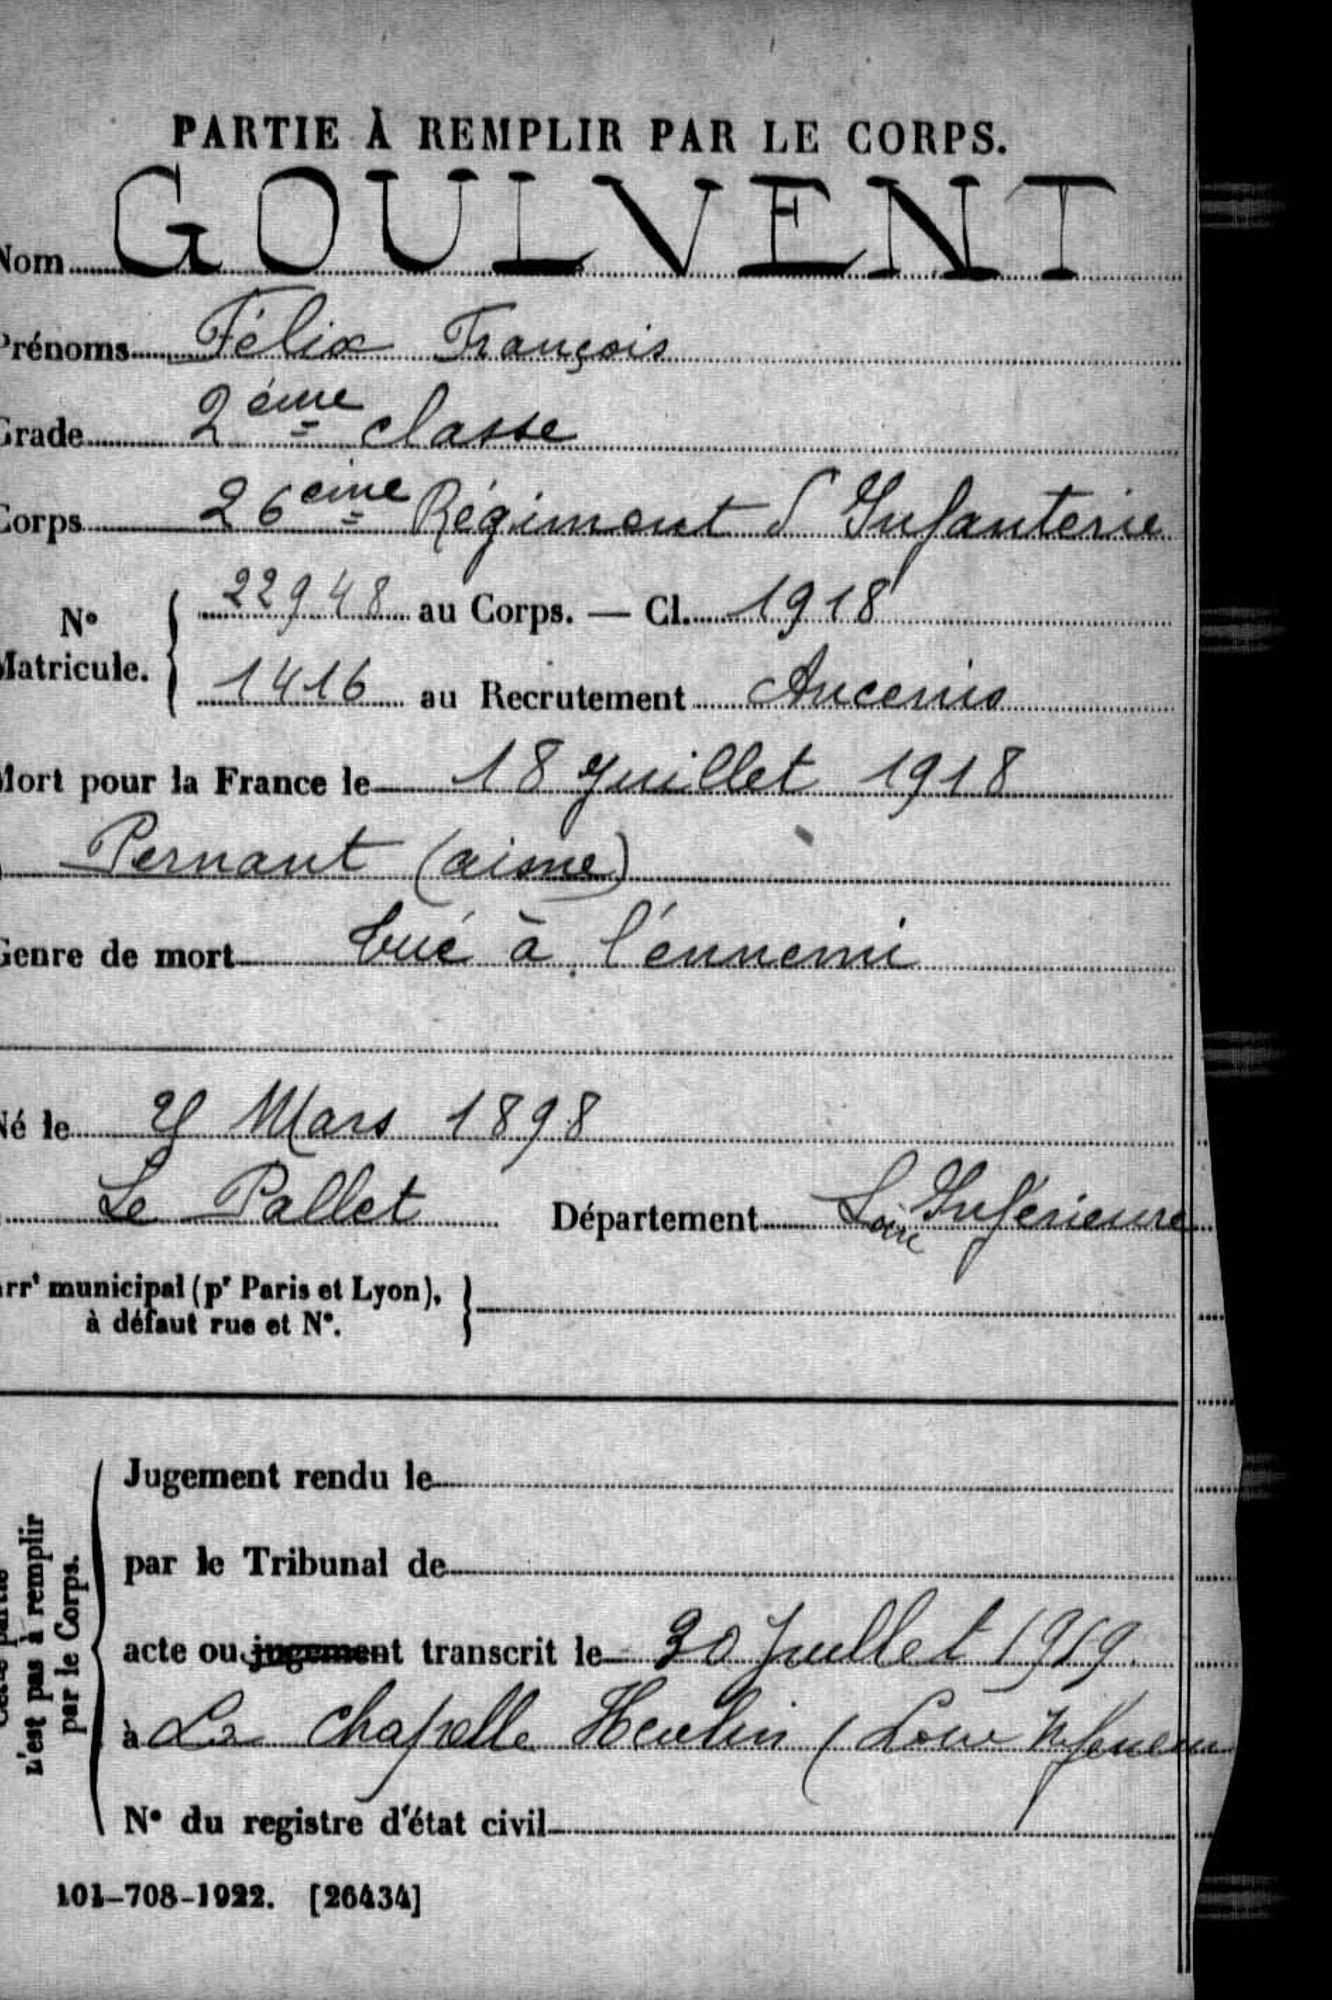 PARTIE À REMPLIR PAR LE CORPS.
Nom GOULVENT
Prénoms Félix François
Grade 2ème classe
Corps 26ème Régiment d'Infanterie
N° Matricule. 22948 au Corps. — Cl. 1918
1416 au Recrutement Ancenis
Mort pour la France le 18 Juillet 1918
Pernant (aisne)
Genre de mort tué à l'énnemi
Né le Mars 1898
Le Pallet Département Loire Inférieure
arrt municipal (pr Paris et Lyon), à défaut rue et N°.
Jugement rendu le
par le Tribunal de
acte ou jugement transcrit le 30 Juillet 1919.
à La Chapelle Heulin (Loire Inférieure
N° du registre d'état civil
n'est pas à remplir
par le Corps.
101-708-1922. [26434]